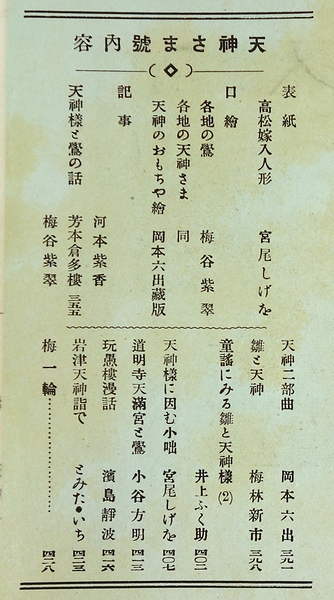 天神さま號內容
表紙
高松嫁入人形 宮尾しげを
口繪
各地の鷽 梅谷紫翠
各地の天神さま 同
天神のおもちや繪 岡本六出藏版
記事
天神樣と鷽の話
河本紫香
芳本倉多樓 三五五
梅谷紫翠
天神二部曲 岡本六出 三九一
雛と天神 梅林新市 三九八
童謠にみる雛と天神樣(2)
井上ふく助 四〇二
天神樣に因む小咄 宮尾しげを 四〇七
道明寺天滿宮と鷽 小谷方明 四一三
玩愚樓漫話 濱島靜波 四一六
岩津天神詣で とみた●いち 四二三
梅一輪………………… 四二八